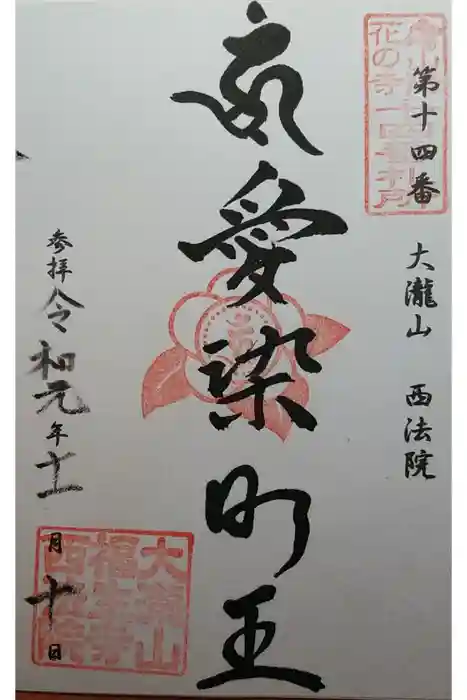 第十四番
大瀧山 西法院
愛染明王
参拝 令和元年十一月十日
花の寺
大瀧山
福生寺
西法院